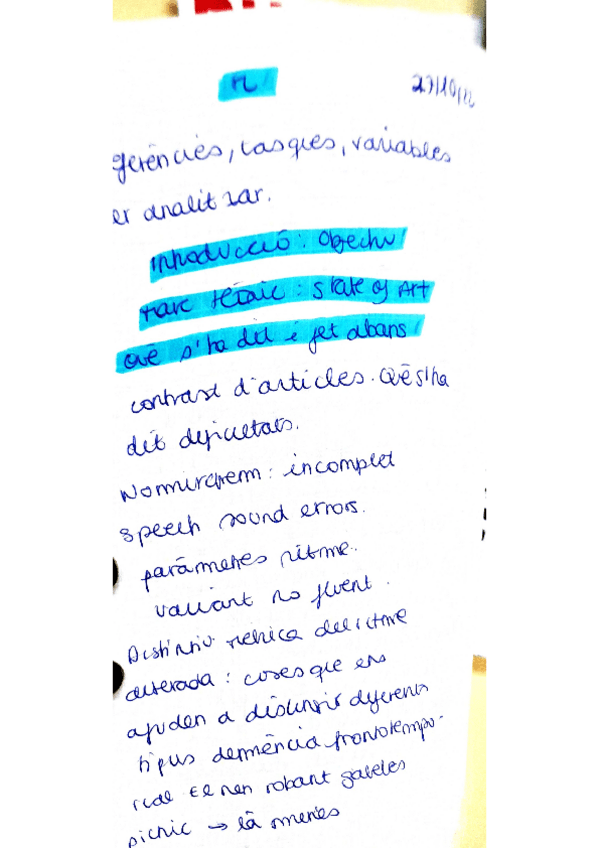 27/10/22
gerències, tasques, variables
er analitzar.
Introducció: Objectiu
Marc teòric: state of Art
Què s'ha dit i fet abans
contrast d'articles. Què s'ha
dit dificultats.
Només : incomplet
speech sound errors.
paràmetres ritme.
variant no fluent.
Distintiu
alterada: coses que ens
ajuden a distingir diferents
tipus demència frontotempo-
ral El nen robant galetes
picnic → la